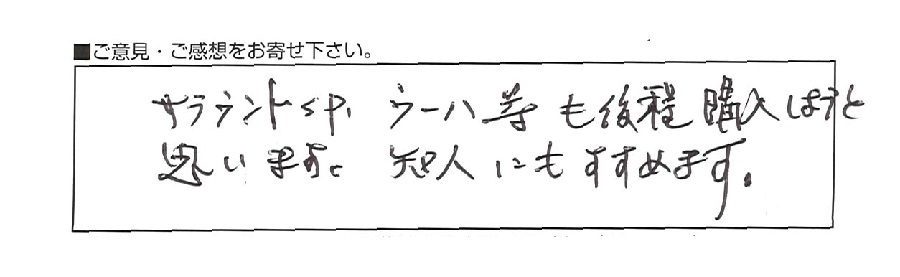 ■ご意見・ご感想をお寄せ下さい。
サラウンドSP、ウーハ等も後程購入しようと
思います。知人にもすすめます。